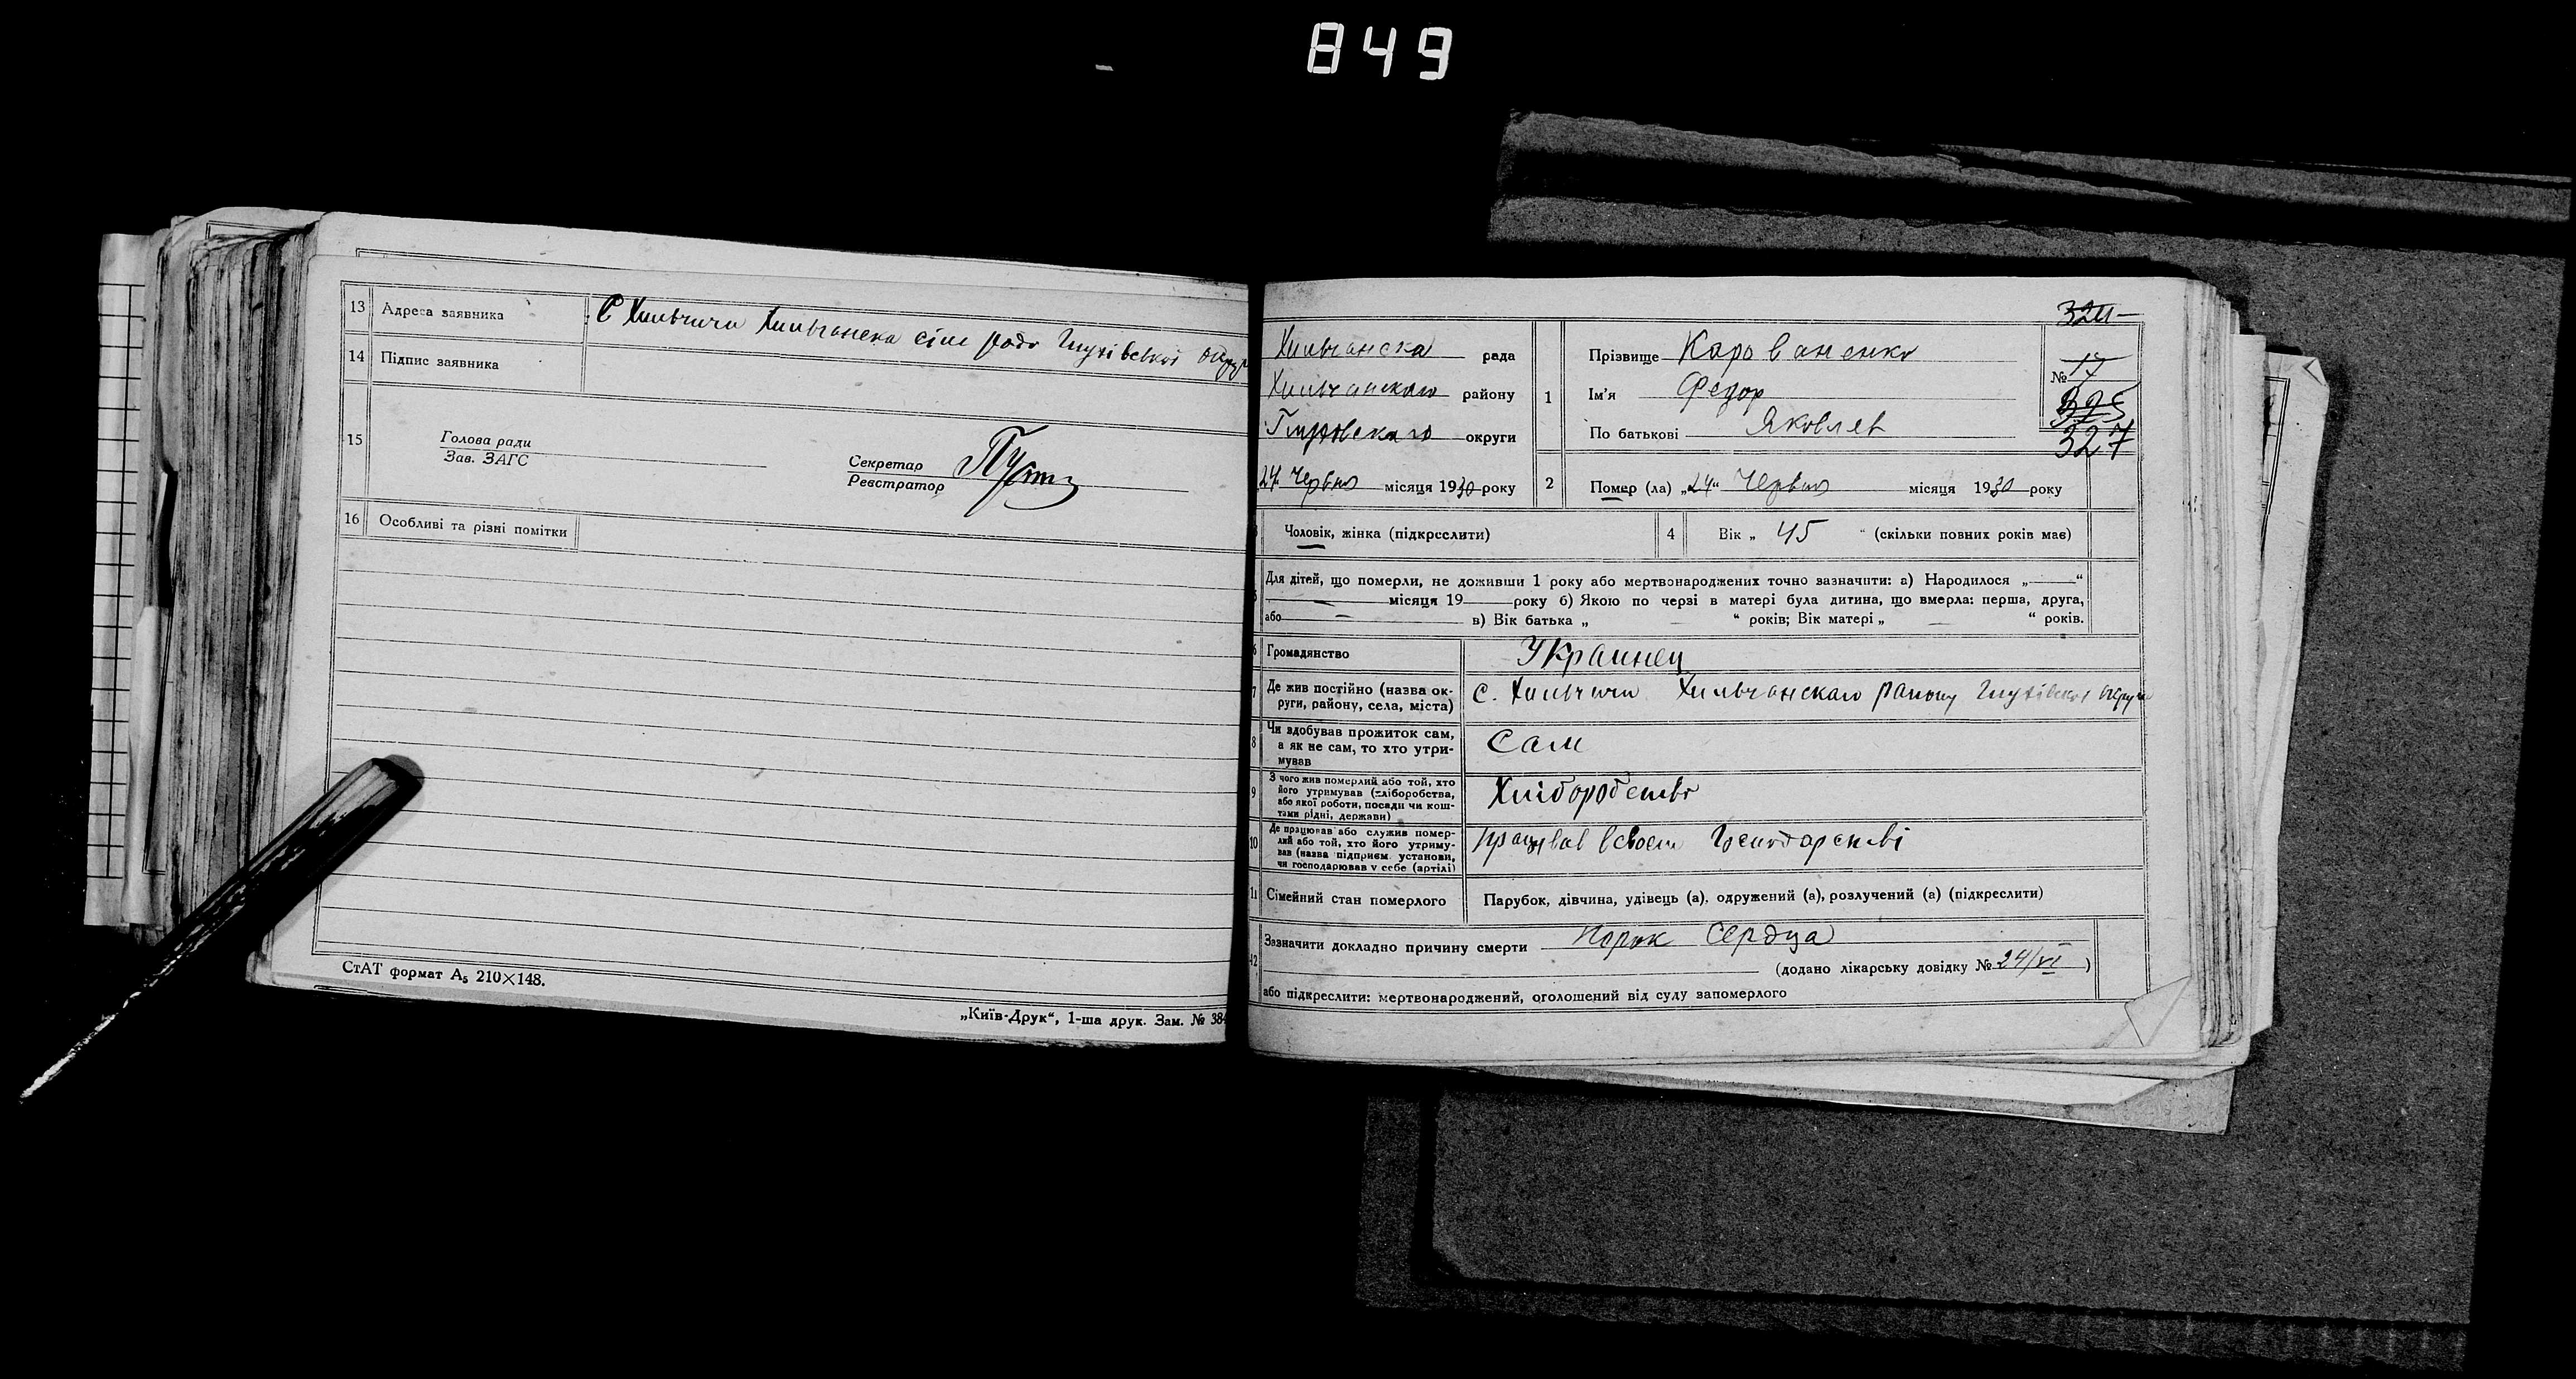 849
13 Адреса заявника С Хильчичи Хильчанска сіл рада Глухівської округи
14 Підпис заявника
15 Голова ради
Зав. ЗАГС
Секретар
Реєстратор
16 Особливі та різні помітки
СтАТ формат А5 210×148.
„Київ-Друк“, 1-ша друк. Зам. № 384
Хильчанска рада
Хильчанскаго району
округи
24 Червня місяця 1930 року
1 Прізвище Карованенко
Ім'я Федор
По батькові Яковлев
№ 17
325
327
2 Помер (ла) „24“ Червня місяця 1930 року
Чоловік, жінка (підкреслити)
4 Вік „ 45 “ (скільки повних років має)
Для дітей, що померли, не доживши 1 року або мертвонароджених точно зазначити: а) Народилося „ “
місяця 19 року б) Якою по черзі в матері була дитина, що вмерла: перша, друга,
або в) Вік батька „ “ років; Вік матері „ “ років.
6 Громадянство Украинец
7 Де жив постійно (назва ок-
руги, району, села, міста) с. Хильчичи Хильчанскаго району Глухівської округи
8 Чи здобував прожиток сам,
а як не сам, то хто утри-
мував Сам
9 З чого жив померлий або той, хто
його утримував (хліборобства,
або якої роботи, посади чи кош-
тами рідні, держави) Хліборобство
10 Де працював або служив помер-
лий або той, хто його утриму-
вав (назва підприєм. установи,
чи господарював у себе (артілі) працював всвоем Господарстві
11 Сімейний стан померлого Парубок, дівчина, удівець (а), одружений (а), розлучений (а) (підкреслити)
12 Зазначити докладно причину смерти Порок Сердца
(додано лікарську довідку № 24/VI )
або підкреслити: мертвонароджений, оголошений від суду запомерлого